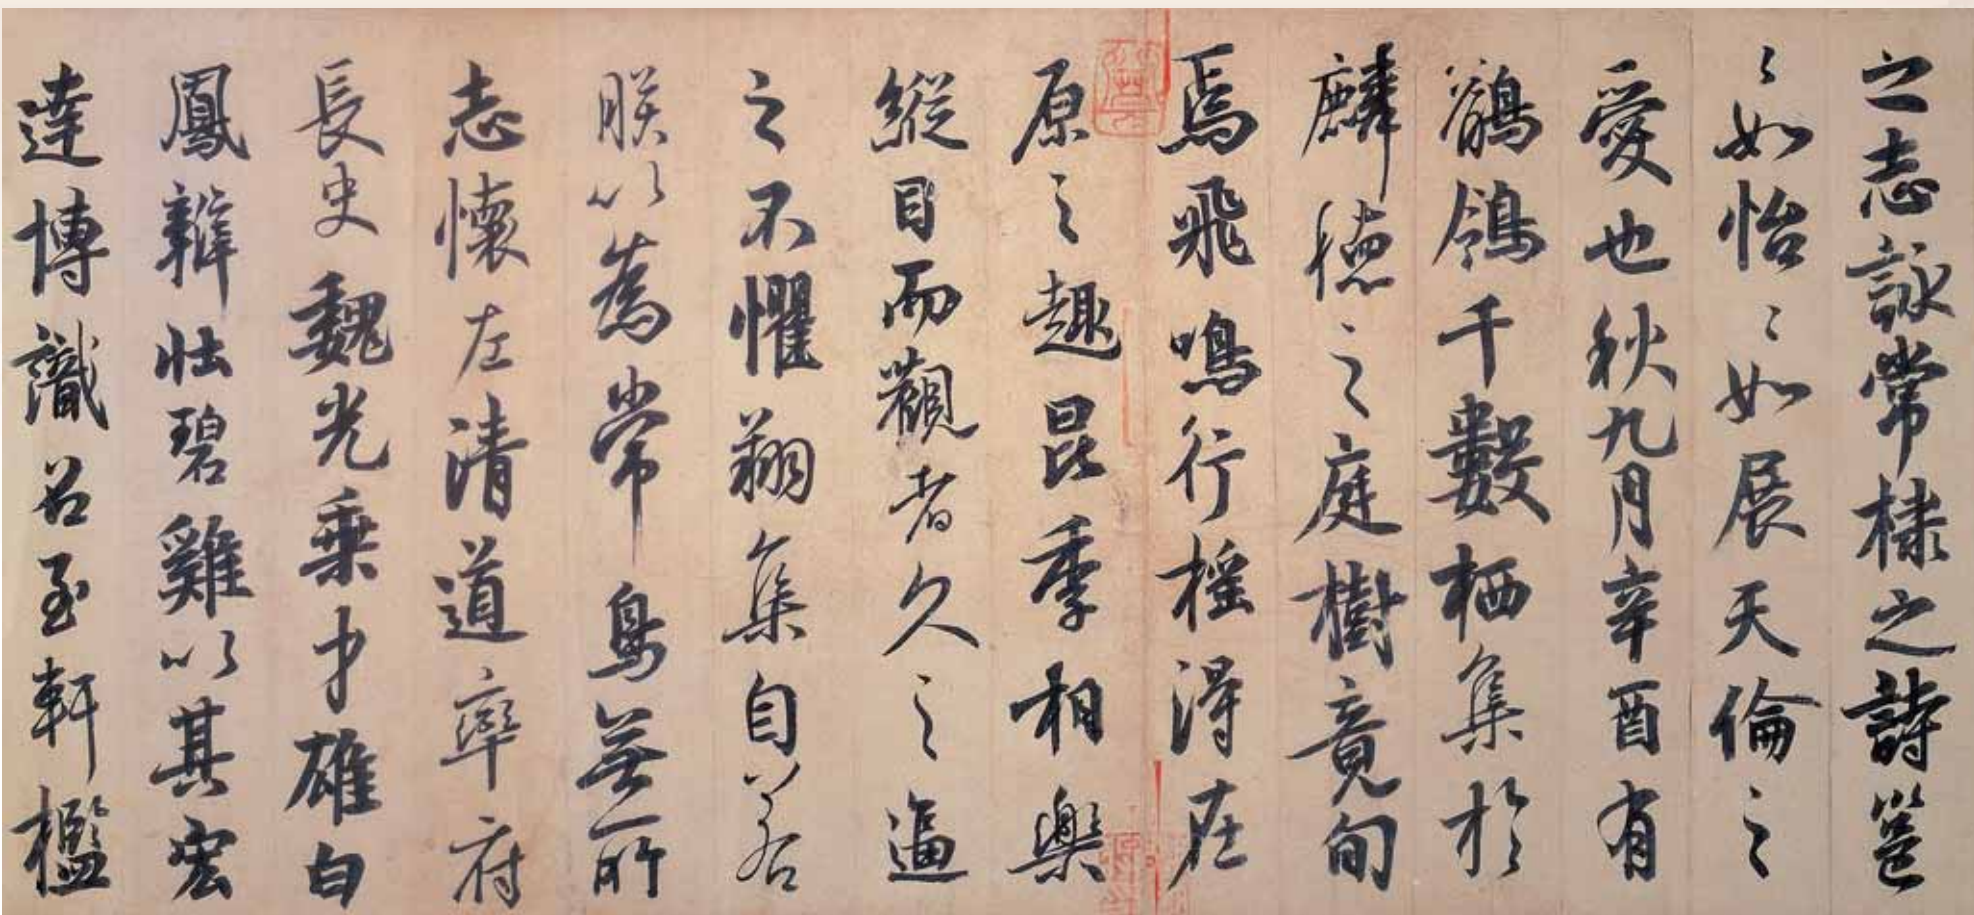 之志詠常棣之詩邕
〻如怡〻如展天倫之
愛也秋九月辛酉有
鶺鴒千數栖集於
麟德之庭樹竟旬
焉飛鳴行摇得在
原之趣昆季相樂
縱目而觀者久之逼
之不懼翔集自若
朕以為常鳥無所
志懷左清道率府
長史魏光乘才雄白
鳳辯壯碧雞以其宏
達博識召至軒檻